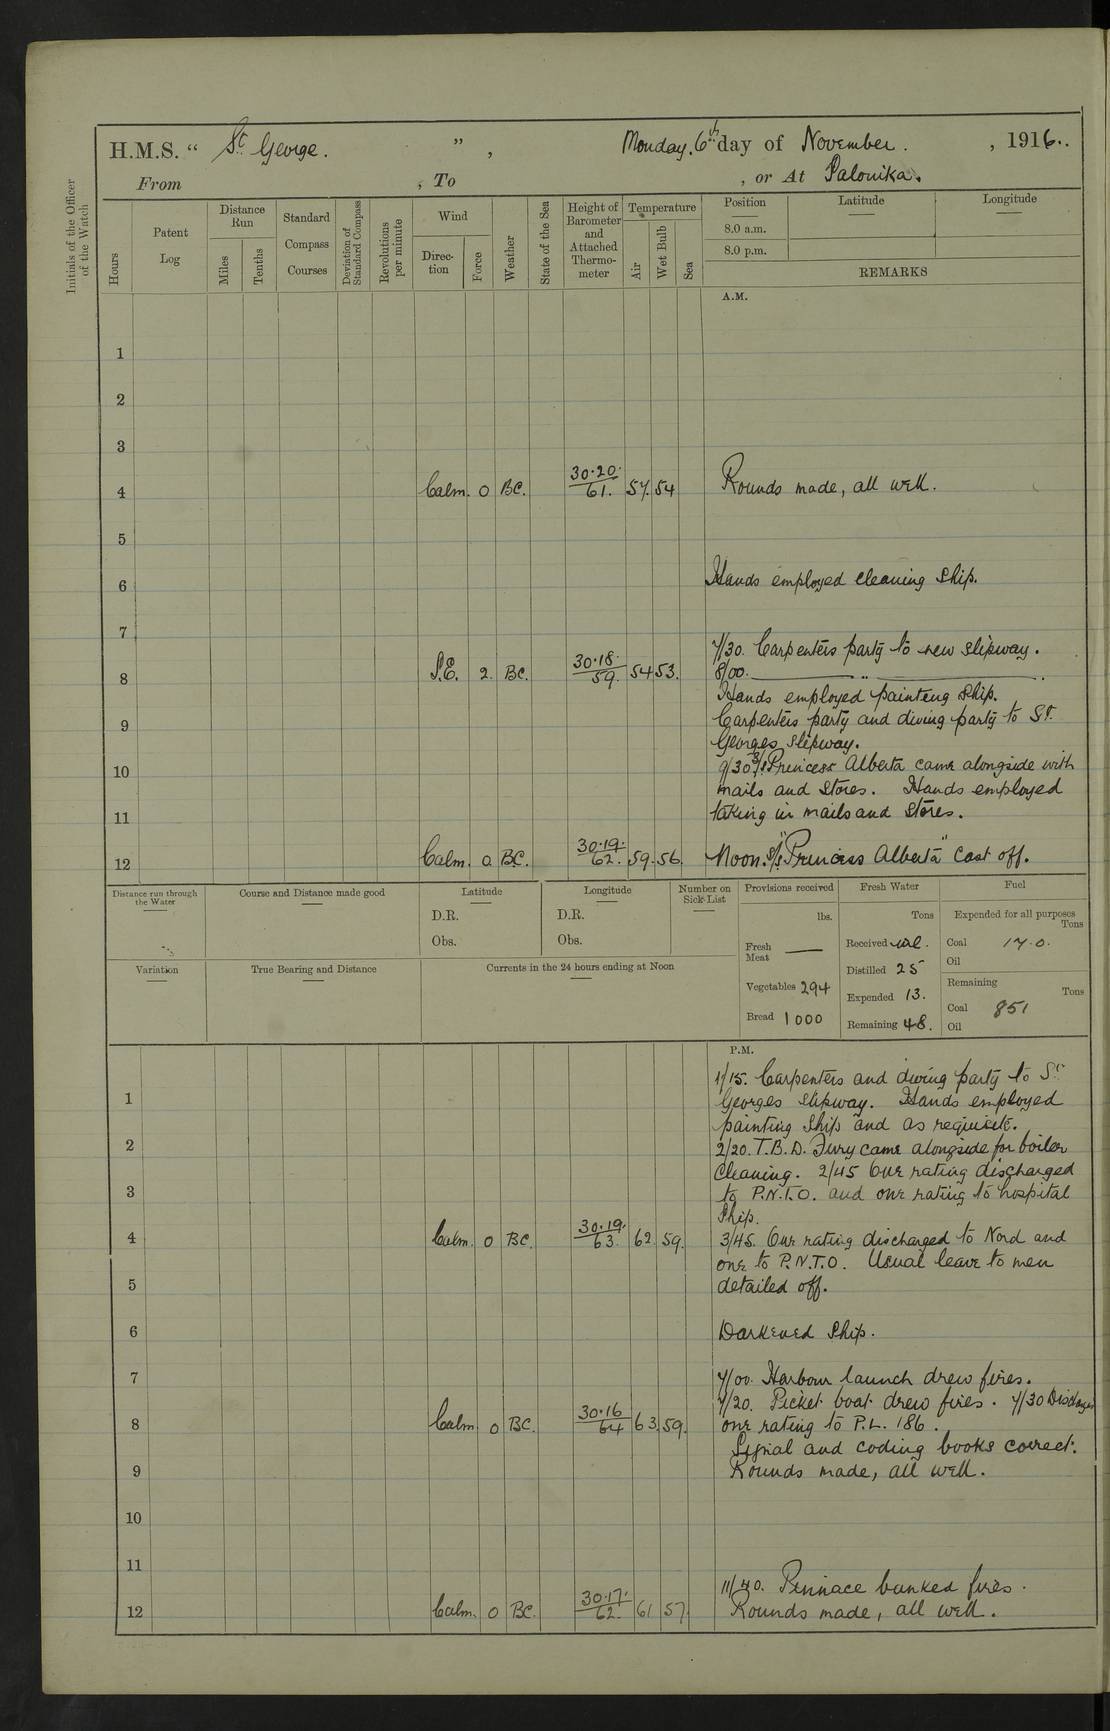 H.M.S. “ St George. ” , Monday. 6th day of November. , 1916..
From , To , or At Salonika.
Initials of the Officer of the Watch
Hours
Patent Log
Distance Run
Miles
Tenths
Standard Compass Courses
Deviation of Standard Compass
Revolutions per minute
Wind
Direction
Force
Weather
State of the Sea
Height of Barometer and Attached Thermometer
Temperature
Air
Wet Bulb
Sea
Position Latitude Longitude
8.0 a.m.
8.0 p.m.
REMARKS
A.M.
1
2
3
4 Calm. 0 BC. 30.20. / 61. 57. 54 Rounds made, all well.
5
6 Hands employed cleaning Ship.
7
7/30. Carpenters party to new slipway.
8 S.E. 2. BC. 30.18. / 59. 54 53. 8/00. ——— „ ———
Hands employed painting Ship.
9 Carpenters party and diving party to St.
Georges Slipway.
10 9/30 S/S Princess Alberta came alongside with
mails and Stores. Hands employed
11 taking in mails and Stores.
12 Calm. 0 BC. 30.19. / 62. 59. 56. Noon. S/S "Princess Alberta" Cast off.
Distance run through the Water
Course and Distance made good
Latitude
D.R.
Obs.
Longitude
D.R.
Obs.
Number on Sick List
Provisions received
lbs.
Fresh Meat ——
Vegetables 294
Bread 1000
Fresh Water
Tons
Received nil.
Distilled 25
Expended 13.
Remaining 48.
Fuel
Expended for all purposes
Tons
Coal 17.0.
Oil
Remaining
Tons
Coal 851
Oil
Variation
True Bearing and Distance
Currents in the 24 hours ending at Noon
P.M.
1/15. Carpenters and diving party to St
1 Georges Slipway. Hands employed
painting Ship and as requisite.
2 2/20. T.B.D. Fury came alongside for boiler
Cleaning. 2/45 One rating discharged
3 to P.N.T.O. and one rating to hospital
Ship.
4 Calm. 0 BC. 30.19. / 63. 62. 59. 3/45. One rating discharged to Nord and
one to P.N.T.O. Usual leave to men
5 detailed off.
6 Darkened Ship.
7 7/00. Harbour launch drew fires.
7/20. Picket boat drew fires. 7/30 Discharged
8 Calm. 0 BC. 30.16 / 64 63. 59. one rating to P.L. 186.
Signal and coding books correct.
9 Rounds made, all well.
10
11
11/40. Pinnace banked fires.
12 Calm. 0 BC. 30.17. / 62. 61 57. Rounds made, all well.